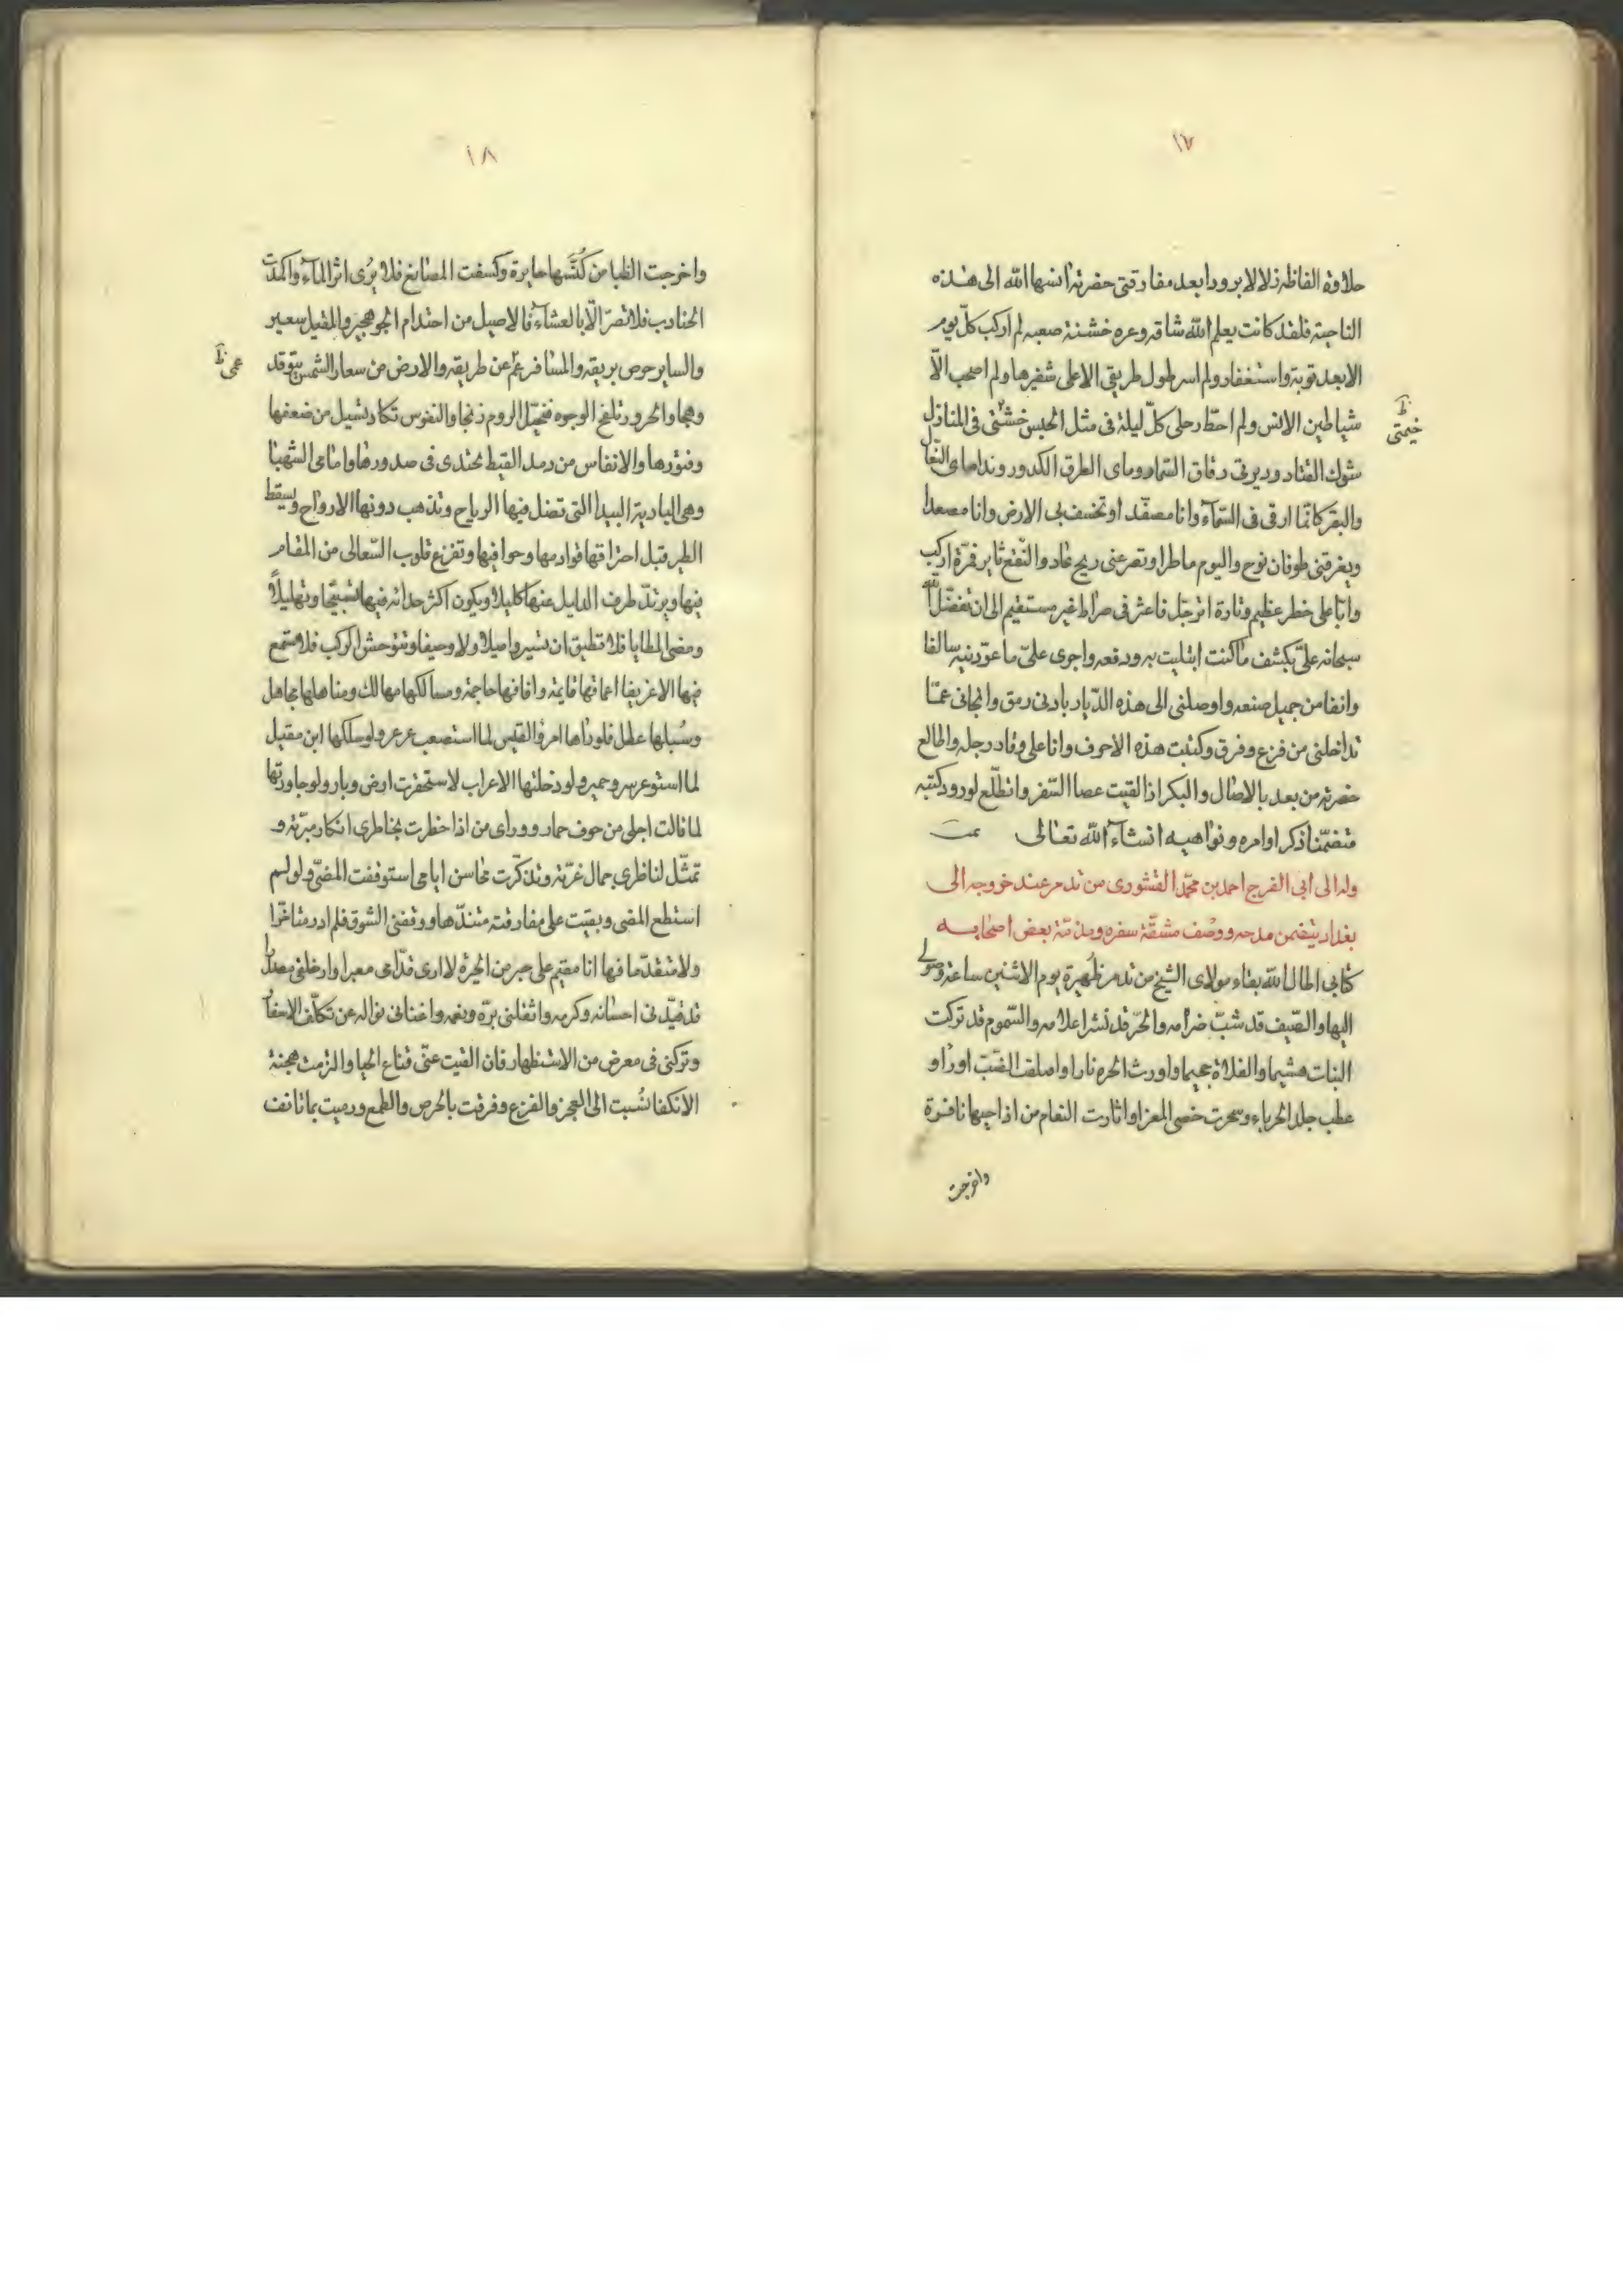 ١٧
حلاوة الفاظه زلالا برودا بعد مفارقتى حضرته انسها الله الى هذه
الناحية فلقد كانت يعلم الله شاقه وعره خشنة صعبه لم اركب كلّ يوم
الا بعد توبة واستغفار ولم اسر طول طريقى الا على شفيرها ولم اصحب الاّ
شياطين الانس ولم احطّ رحلى كلّ ليلة فى مثل الحبس خشتى فى المنازل
خيمتى ظ
شوك القتاد ودير تى رقاق السّماد وماى الطرق الكدور وندماى البغال
والبقر كانّما ارقى فى السّماء وانا مصفّد او تخسف بى الارض وانا مصعد
ويغرقنى طوفان نوح واليوم ماطر او تصرعنى ريح عاد والنّقع ثاير فمرّة اركب
وانا على خطر عظيم وتارة اترجّل فاعثر فى صراط غير مستقيم الى ان تفضّل الله
سبحانه علىّ بكشف ما كنت ابتليت به ودفعه واجرى علىّ ما عوّدنيه سالفا
وانفا من جميل صنعه واوصلنى الى هذه الدّيار بادنى رمق وانجانى عمّا
تداخلنى من فزع وفرق وكتبت هذه الاحرف وانا على وفاد رجله واطالع
حضرته من بعد بالاصال والبكر اذ القيت عصا السّفر واتطلّع لورود كتبه
متضمّنا ذكر اوامره ونواهيه انشاء الله تعالى تمت
وله الى ابى الفرج احمد بن محمّد القشورى من تدمر عند خروجه الى
بغداد يتضمن مدحه ووصف مشقّة سفره ومذمّة بعض اصحابه
كتابى اطال الله بقاء مولاى الشيخ من تدمر ظهيرة يوم الاثنين ساعة وصولى
اليها والصّيف قد شبّ ضرامه والحرّ قد نشر اعلامه والسّموم قد تركت
النبات هشيما والفلاة جحيما واورث الحره نارا واصلقت الضّبّ اورا و
عطب جلد الحرباء وسحرت حصى المعزا واثارت النعام من اداحيها نافرة
واخرجت
١٨
واخرجت الظبا من كُنَّسها حايرة وكسفت المصانع فلا يُرى اثر الماء واكمدت
الجنادب فلا تصرّ الاّ بالعشاء فالاصيل من احتدام الجو هجير والمقيل سعير
والساير حرص بريقه والمسافر عم عن طريقه والارض من سعار الشمس يتوقد
عمى ظ
وهجا والحرور تلفح الوجوه فتخيّل الروم زنجا والنفوس تكاد تسيل من ضعفها
وفتورها والانفاس من رمد القيظ تحتدى فى صدورها وامامى الشهبا
وهى البادية البيدا التى تضل فيها الرياح وتذهب دونها الارواح ويسقط
الطير قبل احتراقها قوادمها وحوافيها وتفزع قلوب السّعالى من المقام
فيها ويرتدّ طرف الدليل عنها كليلا ويكون اكثر حدائه فيها تسبيحا وتهليلاً
ومضى المطايا فلا تطيق ان تسير واميلا ولا وجيفا وتتوحش الركب فلا تسمع
فيها الا عزيفا اعماقها قايمة وافاقها حاجمة ومسالكها مهالك ومناهلها مجاهل
وسُبلها عطل فلو راها امرؤ القيس لما استصعب عرعر ولو سلكها ابن مقبل
لما استوعر سر وحمير ولو دخلتها الاعراب لاستحقرت ارض وبار ولو جاورتها
لما قالت اجلى من جوف حمار وورائى من اذا خطرت بخاطرى افكار مبرّته و
تمثّل لناظرى جمال غرّته وتذكّرت محاسن ايامى استوقفت المضىّ ولو لم
استطع المضى وبقيت على مفارقته متندّما ووقفنى الشوق فلم ادر متاخّرا
ولا متقدّما فها انا مقيم على جبر من الحيرة لا ارى قدّامى معبرا وادخلنى مصدرا
قد قيّدنى احسانه وكرمه واثقلنى برّه ونعمه واغنانى نواله عن تكلّف الاسفار
وتركنى فى معرض من الاستظهار فان القيت عنّى قناع الحيا والزمت هجنة
الانكفا نُسبت الى العجز والفزع وفرقت بالحرص والطمع ورميت بما تانف